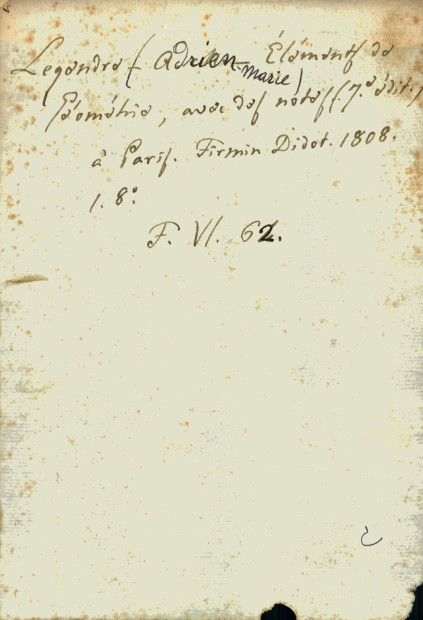 Legendre (Adrien Marie) Éléments de
Géométrie, avec des notes (7.e édit.)
à Paris. Firmin Didot. 1808.
1. 8.°
F. VI. 62.